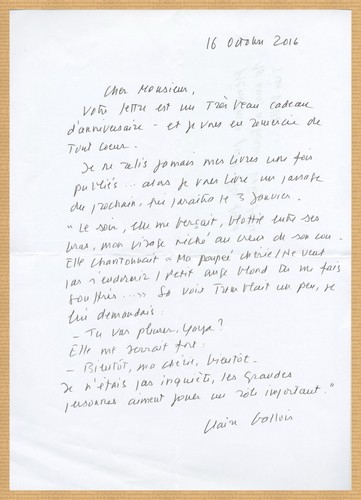 16 octobre 2016
Cher Monsieur,
Votre lettre est un très beau cadeau
d'anniversaire - et je vous en remercie de
tout coeur.
Je ne relis jamais mes livres une fois
publiés... alors je vous livre un passage
du prochain, qui paraîtra le 3 janvier.
"Le soir, elle me berçait, blottie entre ses
bras, mon visage niché au creux de son cou.
Elle chantonnait "Ma poupée chérie / Ne veut
pas s'endormir / Petit ange blond tu me fais
souffrir...." Sa voix tremblait un peu, je
lui demandais :
- Tu vas pleurer, Yoya ?
Elle me serrait fort :
- Bientôt, ma chérie, bientôt.
Je n'étais pas inquiète, les grandes
personnes aiment jouer un rôle important."
Claire Gallois